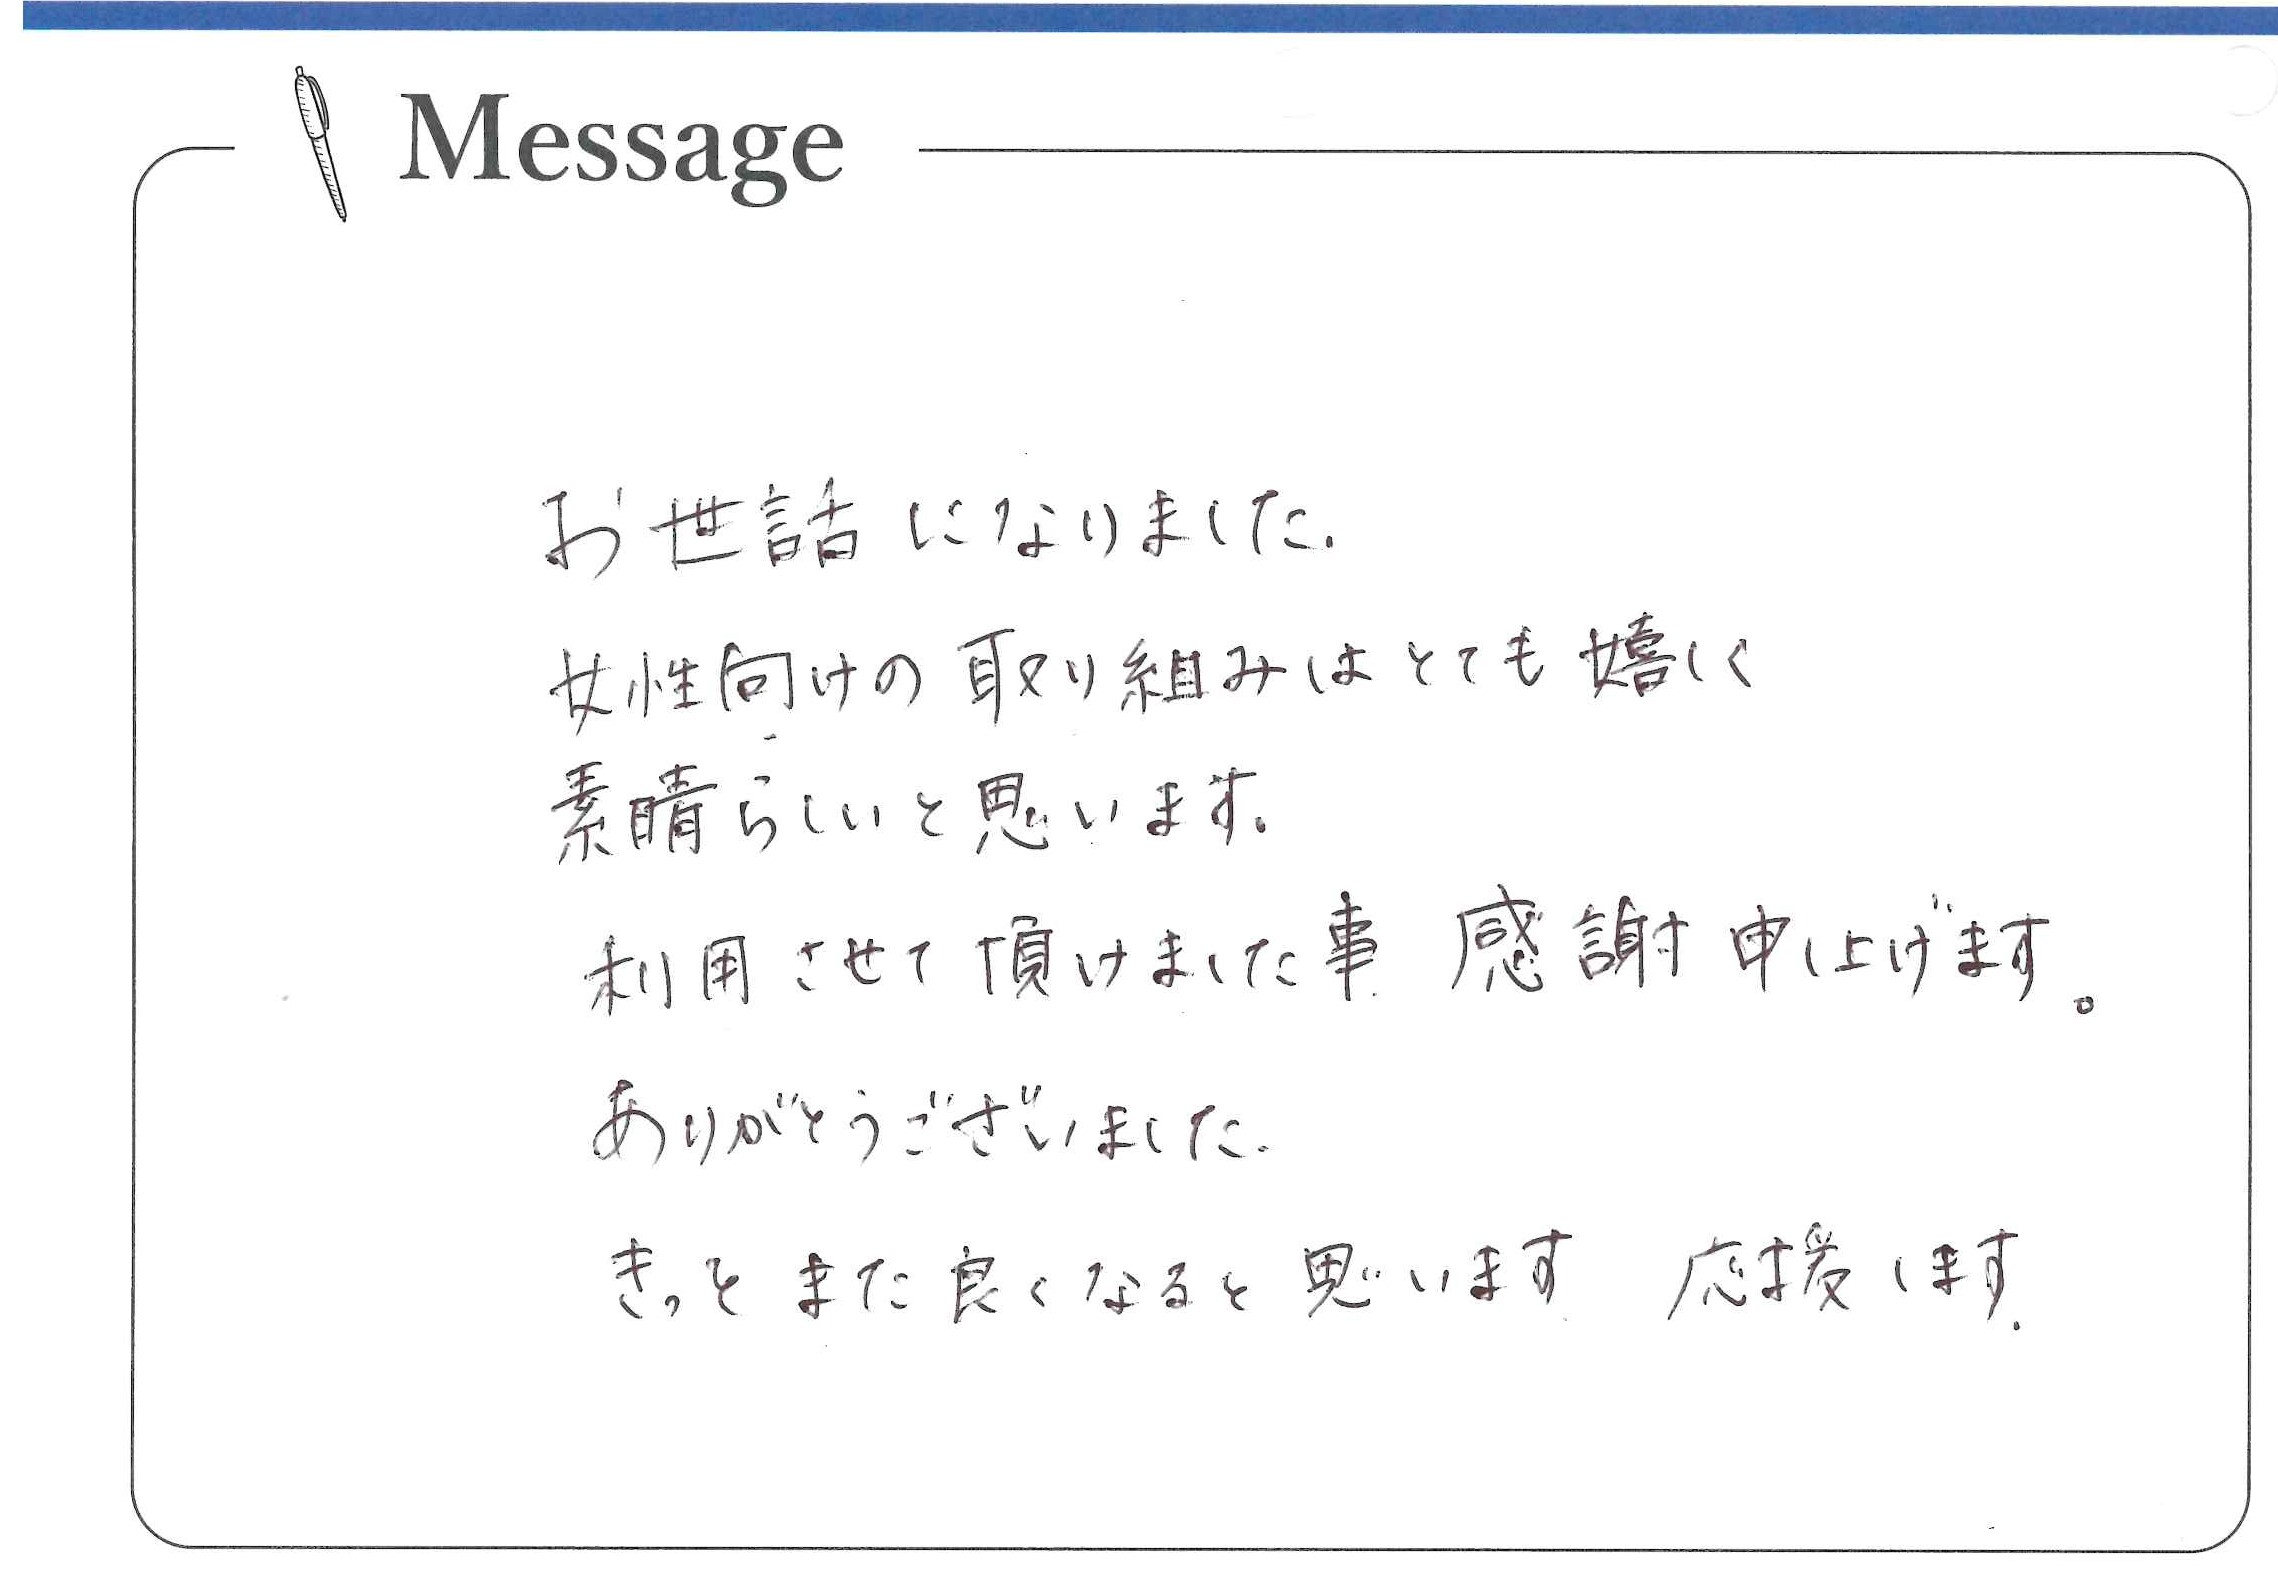 Message
お世話になりました.
女性向けの取り組みはとても嬉しく
素晴らしいと思います。
利用させて頂けました事 感謝申し上げます。
ありがとうございました.
きっとまた良くなると思います 応援します.